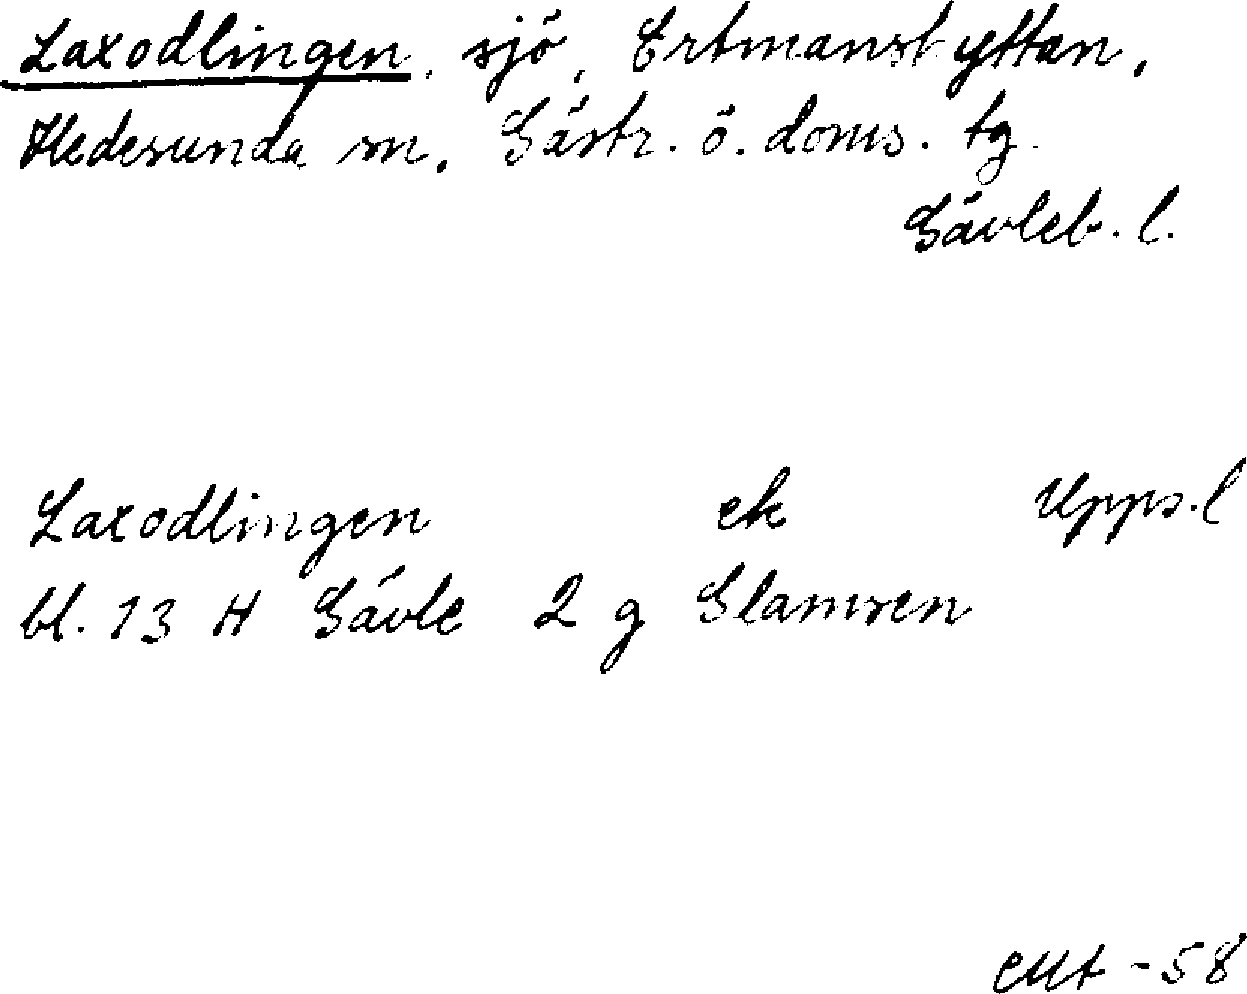 Laxodlingen, sjö, Ertmanshyttan,
Hedesunda sn, Gästr. ö. doms. tg.
Gävleb. l.
Laxodlingen ek Upps. l
bl. 13 H Gävle 2 g Glamsen
-58